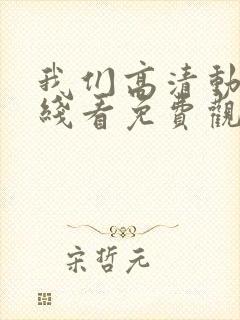 我们高清動
綫看免費觀
宋哲元